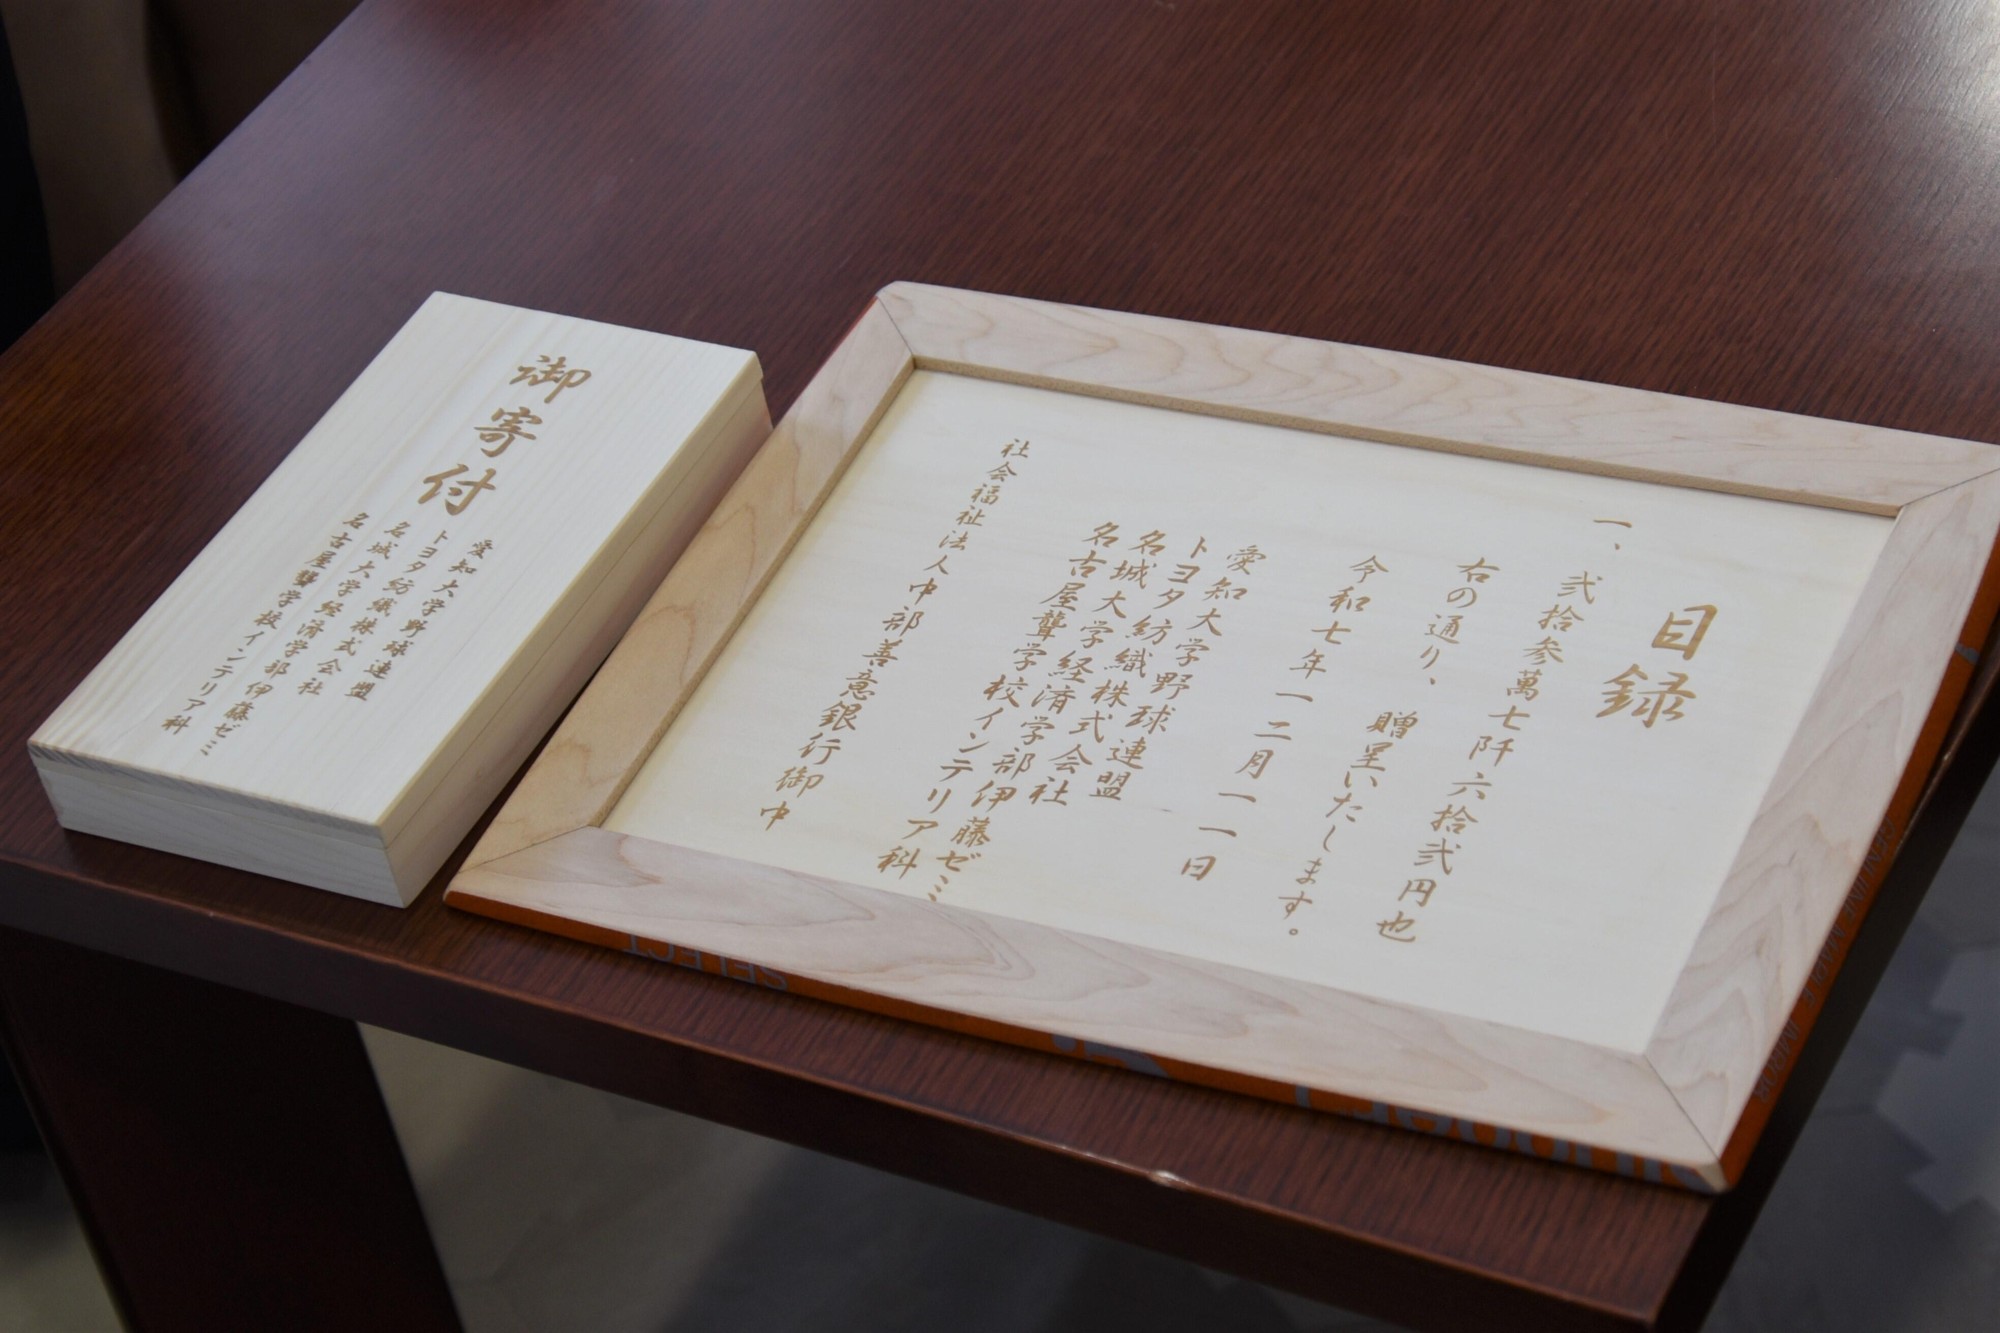 御寄付
愛知大学野球連盟
トヨタ紡織株式会社
名城大学経済学部伊藤ゼミ
名古屋聾学校インテリア科
目録
一、弐拾参萬七阡六拾弐円也
右の通り、贈呈いたします。
令和七年一二月一一日
愛知大学野球連盟
トヨタ紡織株式会社
名城大学経済学部伊藤ゼミ
名古屋聾学校インテリア科
社会福祉法人中部善意銀行御中
SELECT
GENUINE MAPLE